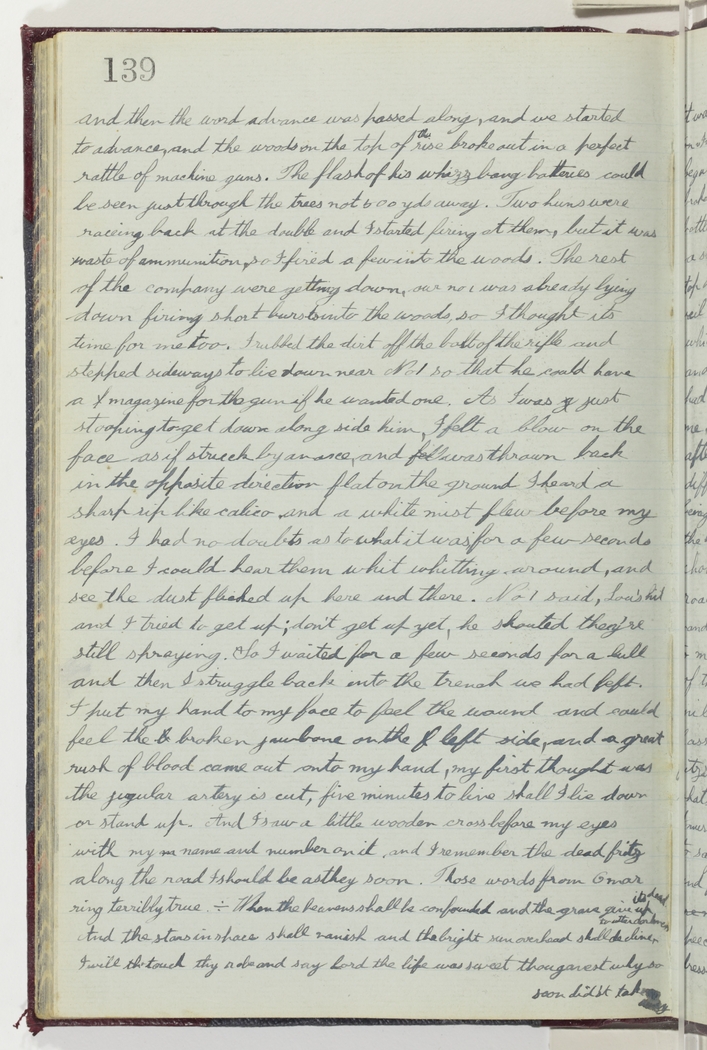 139
and then the word advance was passed along, and we started
to advance, and the woods on the top of the rise broke out in a perfect
rattle of machine guns. The flash of his whizz bang batteries could
be seen just through the trees not 600 yds away. Two huns were
raceing back at the double and I started firing at them, but it was
waste of ammunition, so I fired a few into the woods. The rest
of the company were getting down, our no 1 was already lying
down firing short bursts into the woods, so I thought its
time for me too. I rubbed the dirt off the bolt of the rifle and
stepped sideways to lie down near No 1 so that he could have
a magazine for the gun if he wanted one. As I was just
stooping to get down along side him, I felt a blow on the
face as if struck by an axe, and fell was thrown back
in the opposite direction flat on the ground I heard a
sharp rip like calico and a white mist flew before my
eyes. I had no doubts as to what it was for a few seconds
before I could hear them whit whitting around, and
see the dust flicked up here and there. No 1 said, Lou's hit
and I tried to get up; don't get up yet, he shouted they're
still spraying. So I waited for a few seconds for a lull
and then I struggle back into the trench we had left.
I put my hand to my face to feel the wound and could
feel the broken jawbone on the left side, and a great
rush of blood came out onto my hand, my first thought was
the jugular artery is cut, five minutes to live shall I lie down
or stand up. And I saw a little wooden cross before my eyes
with my name and number on it, and I remember the dead fritz
along the road I should be as they soon. Those words from Omar
ring terribly true. ÷ When the heavens shall be confounded and the grave give up its dead
And the stars in space shall vanish and the bright sun overhead shall decline to utter darkness
I will touch thy robe and say Lord the life was sweet thou gavest why so
soon didst take